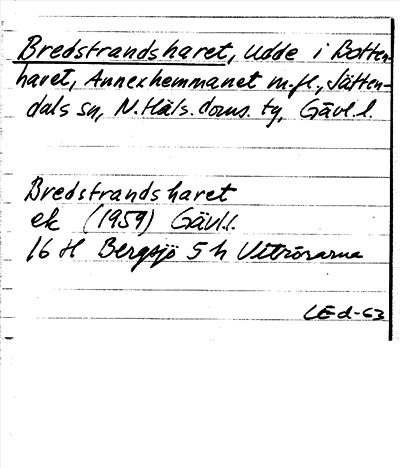 Bredstrandsharet, udde i Botten-
havet, Annexhemmanet m.fl., Jätten-
dals sn, N. Häls. doms. tg, Gävl. l.
Bredstrandsharet
ek (1959) Gävl.l.
16 H Bergsjö 5 h Vitrörarna
LEd-63